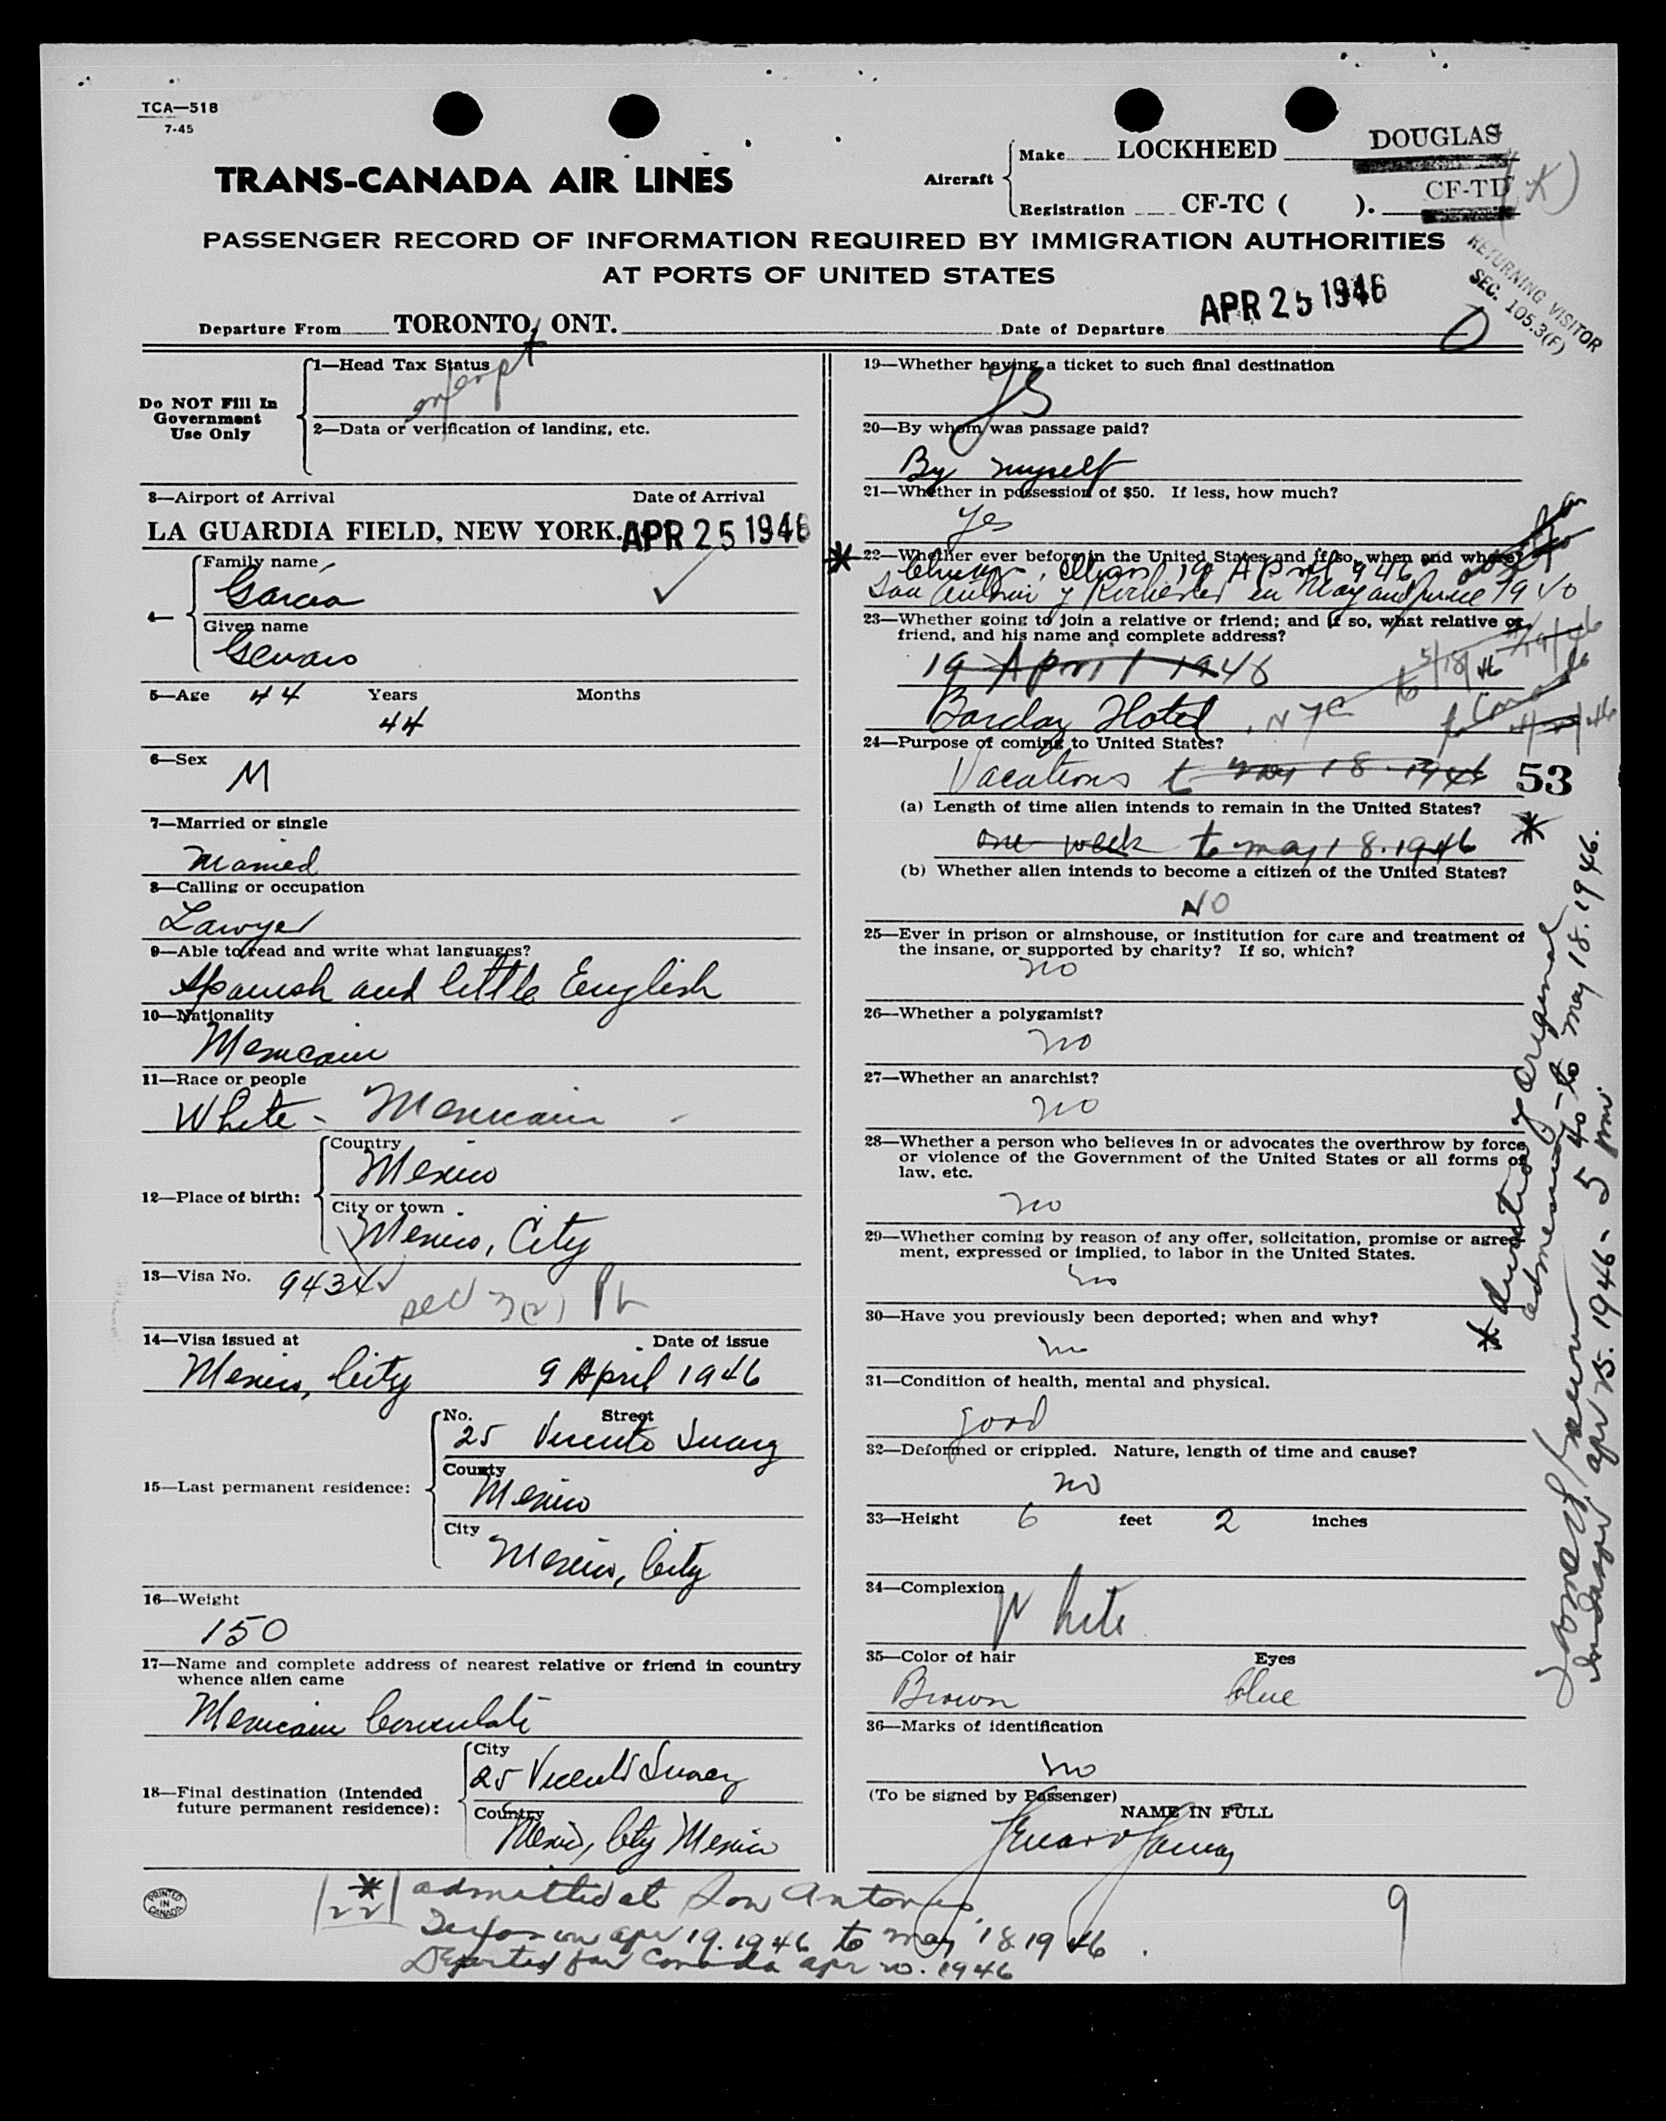 TCA—518
7-45
TRANS-CANADA AIR LINES
Aircraft
Make LOCKHEED DOUGLAS
Registration CF-TC ( ). CF-TD (K)
PASSENGER RECORD OF INFORMATION REQUIRED BY IMMIGRATION AUTHORITIES
AT PORTS OF UNITED STATES
RETURNING VISITOR
SEC. 105.3(F)
Departure From TORONTO, ONT. Date of Departure APR 25 1946
Do NOT Fill In
Government
Use Only
1—Head Tax Status
exempt
2—Data or verification of landing, etc.
3—Airport of Arrival Date of Arrival
LA GUARDIA FIELD, NEW YORK. APR 25 1946
4—
Family name
Garcia
Given name
5—Age 44 Years Months
44
6—Sex
M
7—Married or single
Married
8—Calling or occupation
Lawyer
9—Able to read and write what languages?
Spanish and little English
10—Nationality
Mexican
11—Race or people
White - Mexican
12—Place of birth:
Country
Mexico
City or town
Mexico, City
13—Visa No. 9434
14—Visa issued at Date of issue
Mexico, City 9 April 1946
15—Last permanent residence:
No. Street
25 Vicente Suarez
County
Mexico
City
Mexico, City
16—Weight
150
17—Name and complete address of nearest relative or friend in country
whence alien came
Mexican Consulate
18—Final destination (Intended
future permanent residence):
City
25 Vicente Suarez
Country
Mexico, City Mexico
PRINTED
IN
CANADA
19—Whether having a ticket to such final destination
Yes
20—By whom was passage paid?
By myself
21—Whether in possession of $50. If less, how much?
Yes
* 22—Whether ever before in the United States and if so, when and where?
19 April 1946
San Antonio y Rochester en May and June 1940
23—Whether going to join a relative or friend; and if so, what relative or
friend, and his name and complete address?
19 April 1946
Barclay Hotel, NYC
24—Purpose of coming to United States?
Vacations to May 18. 1946 53
(a) Length of time alien intends to remain in the United States?
one week to may 18. 1946 *
(b) Whether alien intends to become a citizen of the United States?
NO
25—Ever in prison or almshouse, or institution for care and treatment of
the insane, or supported by charity? If so, which?
no
26—Whether a polygamist?
no
27—Whether an anarchist?
no
28—Whether a person who believes in or advocates the overthrow by force
or violence of the Government of the United States or all forms of
law, etc.
no
29—Whether coming by reason of any offer, solicitation, promise or agree-
ment, expressed or implied, to labor in the United States.
no
30—Have you previously been deported; when and why?
no
31—Condition of health, mental and physical.
good
32—Deformed or crippled. Nature, length of time and cause?
no
33—Height 6 feet 2 inches
34—Complexion
White
35—Color of hair Eyes
Brown blue
36—Marks of identification
no
(To be signed by Passenger)
NAME IN FULL
* duration of original
admission - to may 18. 1946.
apr 25. 1946 - 5 40 pm.
* 22 admitted at San Antonio
Texas on apr 19. 1946 to may 18 1946.
Departed for Canada apr 20. 1946
9